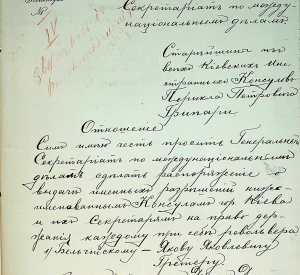 №
IV
Секретариатъ по между-
народнымъ дѣламъ
Старѣйшина изъ
всѣхъ Кіевскихъ Ино-
странныхъ Консуловъ
Перикла Петровича
Грипари
Отношеніе
Симъ имѣю честь просить Генеральный
Секретариатъ по международнымъ
дѣламъ сдѣлать распоряженіе о
выдачѣ именныхъ разрѣшеній ниже-
поименованнымъ Консуламъ гор. Кіева
и ихъ Секретарямъ на право дер-
жанія каждому при себѣ револьвера
Бельгійскому - Якову Яковлевичу
Гретеру